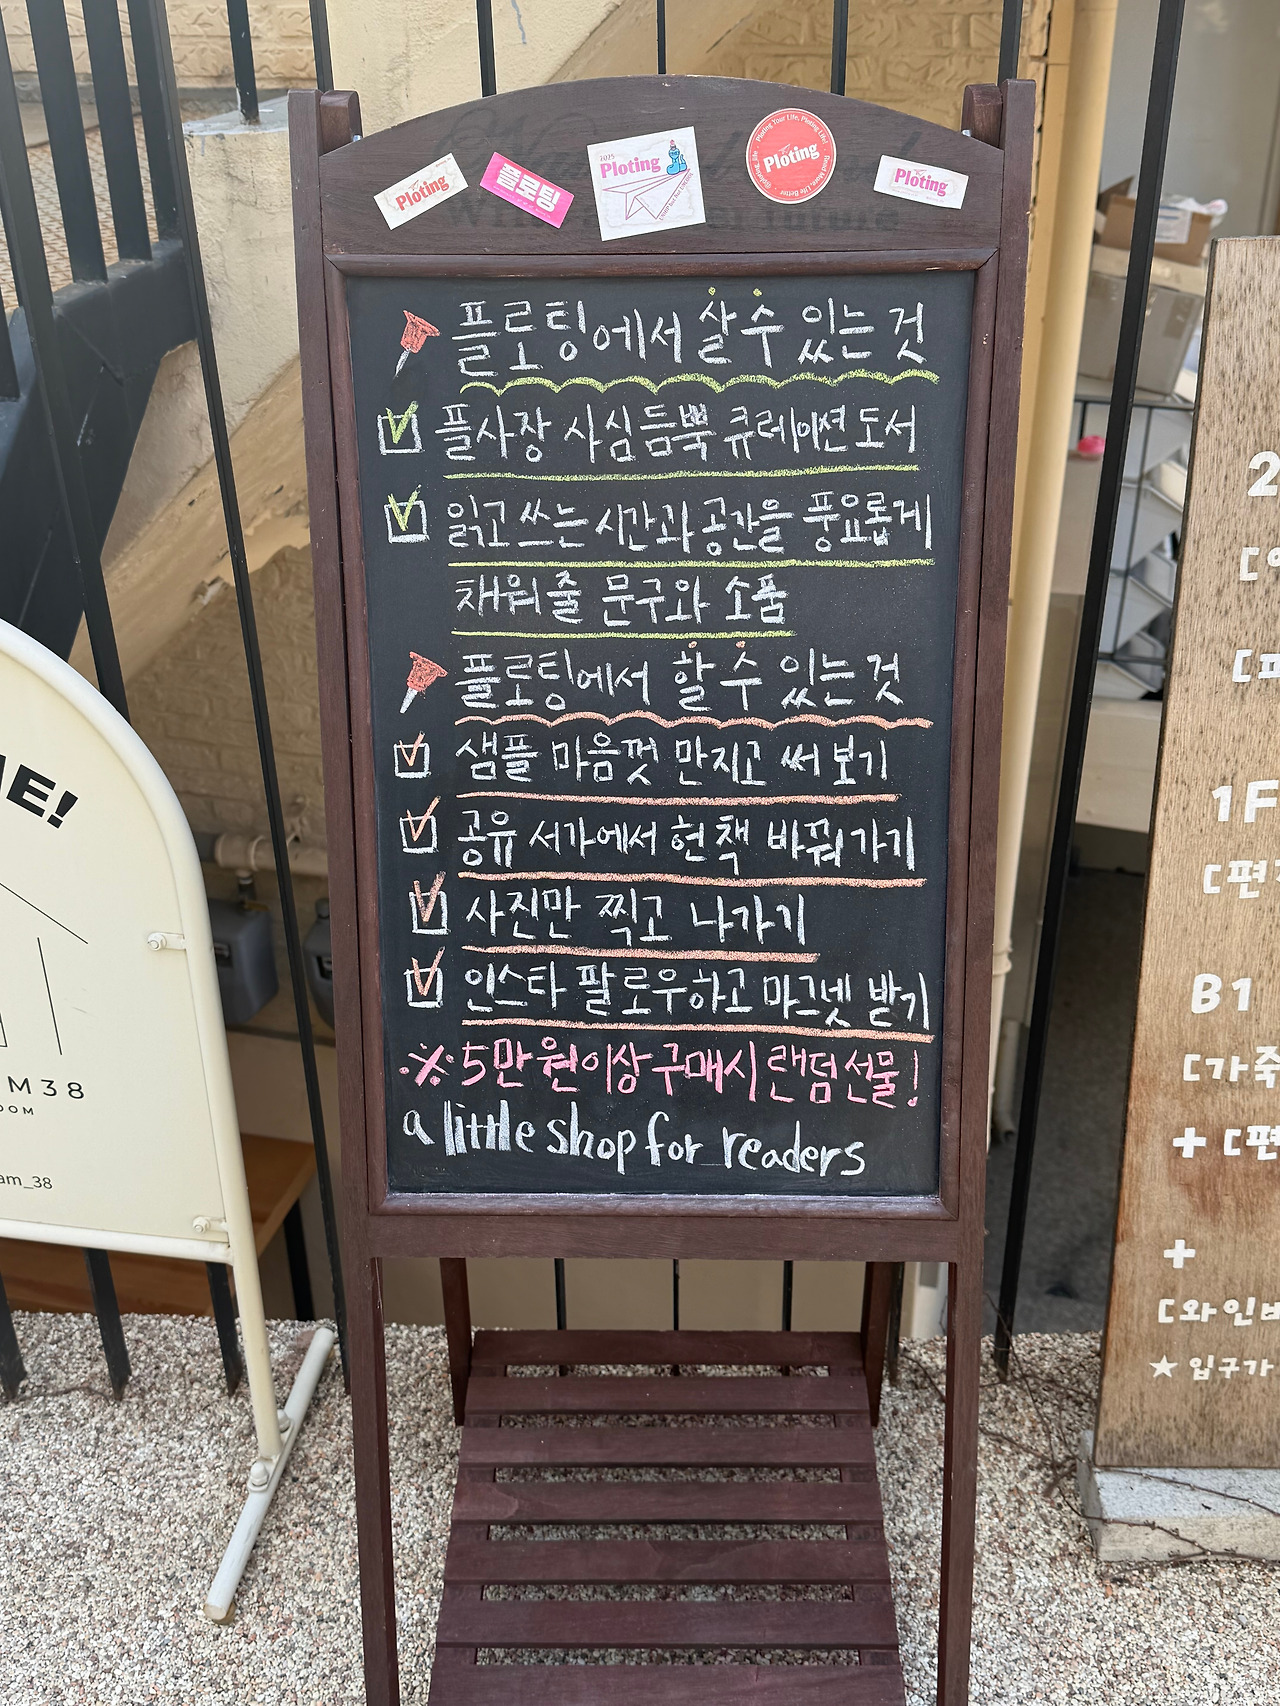 Ploting
플로팅
2025
Ploting
Ploting Your Life, Ploting Life!
Ploting
Ploting
플로팅에서 살 수 있는 것
플사장 사심 듬뿍 큐레이션 도서
읽고 쓰는 시간과 공간을 풍요롭게
채워 줄 문구와 소품
플로팅에서 할 수 있는 것
샘플 마음껏 만지고 써 보기
공유 서가에서 헌책 바꿔가기
사진만 찍고 나가기
인스타 팔로우하고 마그넷 받기
※5만원이상 구매시 랜덤 선물!
a little shop for readers
E!
M38
OOM
am_38
2
1F
[편
B1
[가죽
+ [편
+
[와인바
★ 입구가